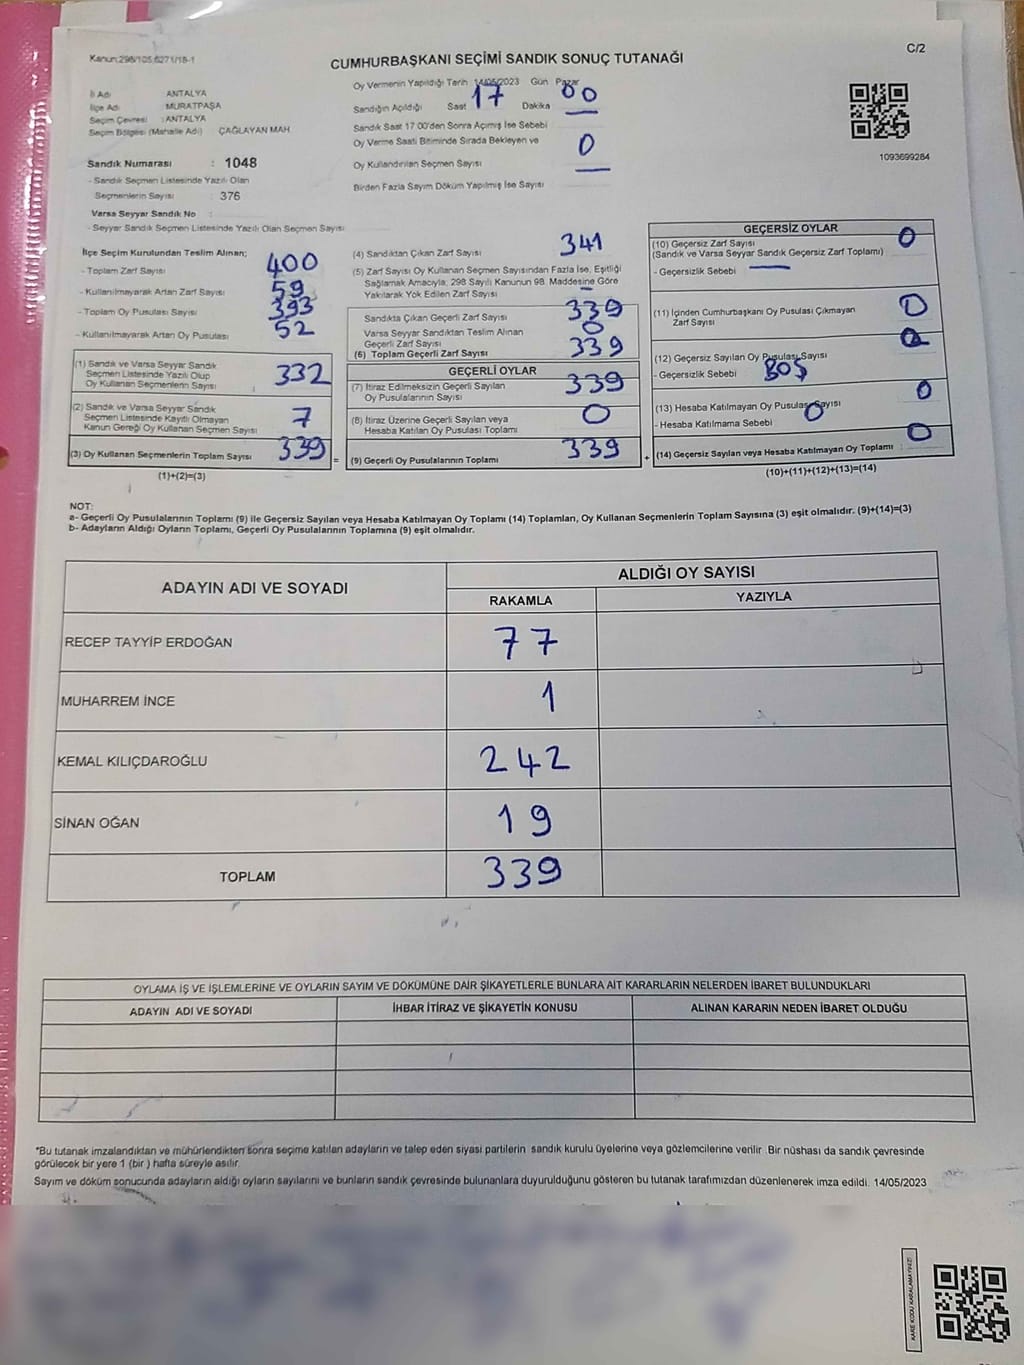 C/2
Kanun:298/105,6271/18-1
CUMHURBAŞKANI SEÇİMİ SANDIK SONUÇ TUTANAĞI
İl Adı : ANTALYA
İlçe Adı : MURATPAŞA
Seçim Çevresi : ANTALYA
Seçim Bölgesi (Mahalle Adı) ÇAĞLAYAN MAH.
Sandık Numarası : 1048
- Sandık Seçmen Listesinde Yazılı Olan
Seçmenlerin Sayısı : 376
Varsa Seyyar Sandık No :
- Seyyar Sandık Seçmen Listesinde Yazılı Olan Seçmen Sayısı
Oy Vermenin Yapıldığı Tarih 14/05/2023 Gün Pazar
Sandığın Açıldığı Saat 17 Dakika 00
Sandık Saat 17:00'den Sonra Açımış İse Sebebi
Oy Verme Saati Bitiminde Sırada Bekleyen ve
Oy Kullandırılan Seçmen Sayısı 0
Birden Fazla Sayım Döküm Yapılmış İse Sayısı
1093699284
İlçe Seçim Kurulundan Teslim Alınan;
- Toplam Zarf Sayısı 400
- Kullanılmayarak Artan Zarf Sayısı 59
- Toplam Oy Pusulası Sayısı 393
- Kullanılmayarak Artan Oy Pusulası 52
(1) Sandık ve Varsa Seyyar Sandık
Seçmen Listesinde Yazılı Olup
Oy Kullanan Seçmenlerin Sayısı 332
(2) Sandık ve Varsa Seyyar Sandık
Seçmen Listesinde Kayıtlı Olmayan
Kanun Gereği Oy Kullanan Seçmen Sayısı 7
(3) Oy Kullanan Seçmenlerin Toplam Sayısı 339
(1)+(2)=(3)
(4) Sandıktan Çıkan Zarf Sayısı 341
(5) Zarf Sayısı Oy Kullanan Seçmen Sayısından Fazla İse, Eşitliği
Sağlamak Amacıyla, 298 Sayılı Kanunun 98. Maddesine Göre
Yakılarak Yok Edilen Zarf Sayısı
Sandıkta Çıkan Geçerli Zarf Sayısı 339
Varsa Seyyar Sandıktan Teslim Alınan
Geçerli Zarf Sayısı 0
(6) Toplam Geçerli Zarf Sayısı 339
GEÇERLİ OYLAR
(7) İtiraz Edilmeksizin Geçerli Sayılan
Oy Pusulalarının Sayısı 339
(8) İtiraz Üzerine Geçerli Sayılan veya
Hesaba Katılan Oy Pusulası Toplamı 0
= (9) Geçerli Oy Pusulalarının Toplamı 339 +
GEÇERSİZ OYLAR
(10) Geçersiz Zarf Sayısı 0
(Sandık ve Varsa Seyyar Sandık Geçersiz Zarf Toplamı)
- Geçersizlik Sebebi
(11) İçinden Cumhurbaşkanı Oy Pusulası Çıkmayan
Zarf Sayısı 0
(12) Geçersiz Sayılan Oy Pusulası Sayısı
- Geçersizlik Sebebi BOŞ
(13) Hesaba Katılmayan Oy Pusulası Sayısı 0
- Hesaba Katılmama Sebebi : 0
(14) Geçersiz Sayılan veya Hesaba Katılmayan Oy Toplamı : 0
(10)+(11)+(12)+(13)=(14)
NOT:
a- Geçerli Oy Pusulalarının Toplamı (9) ile Geçersiz Sayılan veya Hesaba Katılmayan Oy Toplamı (14) Toplamları, Oy Kullanan Seçmenlerin Toplam Sayısına (3) eşit olmalıdır. (9)+(14)=(3)
b- Adayların Aldığı Oyların Toplamı, Geçerli Oy Pusulalarının Toplamına (9) eşit olmalıdır.
ADAYIN ADI VE SOYADI
ALDIĞI OY SAYISI
RAKAMLA YAZIYLA
RECEP TAYYİP ERDOĞAN 77
MUHARREM İNCE 1
KEMAL KILIÇDAROĞLU 242
SİNAN OĞAN 19
TOPLAM 339
OYLAMA İŞ VE İŞLEMLERİNE VE OYLARIN SAYIM VE DÖKÜMÜNE DAİR ŞİKAYETLERLE BUNLARA AİT KARARLARIN NELERDEN İBARET BULUNDUKLARI
ADAYIN ADI VE SOYADI İHBAR İTİRAZ VE ŞİKAYETİN KONUSU ALINAN KARARIN NEDEN İBARET OLDUĞU
*Bu tutanak imzalandıktan ve mühürlendikten sonra seçime katılan adayların ve talep eden siyasi partilerin sandık kurulu üyelerine veya gözlemcilerine verilir. Bir nüshası da sandık çevresinde
görülecek bir yere 1 (bir) hafta süreyle asılır.
Sayım ve döküm sonucunda adayların aldığı oyların sayılarını ve bunların sandık çevresinde bulunanlara duyurulduğunu gösteren bu tutanak tarafımızdan düzenlenerek imza edildi. 14/05/2023
KARE KODU KARALAMAYINIZ!